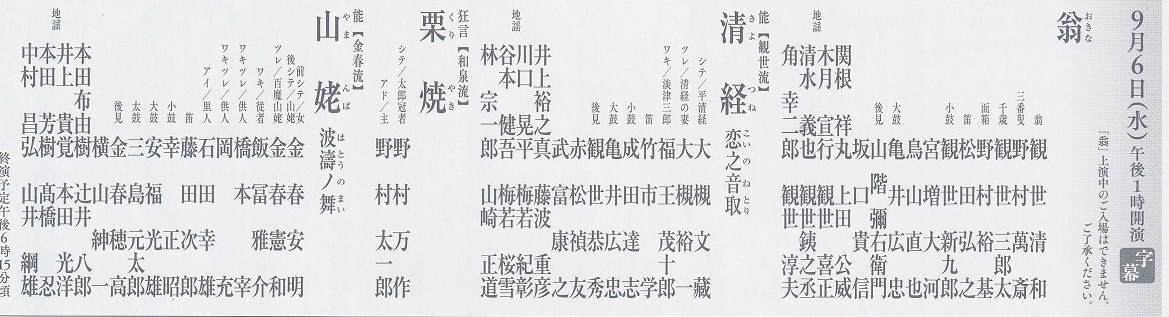 9月6日(水)午後1時開演 字幕
「翁」上演中のご入場はできません。
ご了承ください。
翁 おきな
翁 観世 清和
三番叟 野村 萬斎
千歳 観世 三郎太
面箱 野村 裕基
笛 松田 弘之
小鼓 観世 新九郎
宮増 大河
鳥山 直也
大鼓 亀井 広忠
後見 山階彌右衛門
坂口 貴信
地謡 関根 祥丸 上田 公威
木月 宣行 観世 喜正
清水 義也 観世銕之丞
角 幸二郎 観世 淳夫
能【観世流】
清経 きよつね 恋之音取 こいのねとり
シテ/平清経 大槻 文藏
ツレ/清経の妻 大槻 裕一
ワキ/淡津三郎 福王 茂十郎
笛 竹市 学
小鼓 成田 達志
大鼓 亀井 広忠
後見 観世 恭秀
赤松 禎友
武富 康之
地謡 井上裕之真 藤波 重彦
川口 晃平 梅若 紀彰
谷本 健吾 梅若 桜雪
林 宗一郎 山崎 正道
狂言【和泉流】
栗焼 くりやき
シテ/太郎冠者 野村 万作
アド/主 野村 太一郎
能【金春流】
山姥 やまんば 波濤ノ舞 はとうのまい
前シテ/女
後シテ/山姥 金春 安明
ツレ/百魔山姥 金春 憲和
ワキ/従者 飯冨 雅介
ワキツレ/供人 橋本 宰
ワキツレ/供人 岡 充
アイ/里人 石田 幸雄
笛 藤田 次郎
小鼓 幸 正昭
大鼓 安福 光雄
太鼓 三島 元太郎
後見 金春 穂高
横山 紳一
地謡 本田布由樹 辻井 八郎
井上 貴覚 本田 光洋
本田 芳樹 髙橋 忍
中村 昌弘 山井 綱雄
終演予定午後6時15分頃